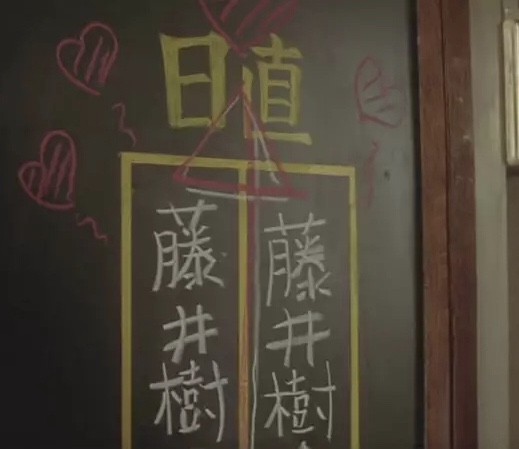 日直
藤井樹
藤井樹